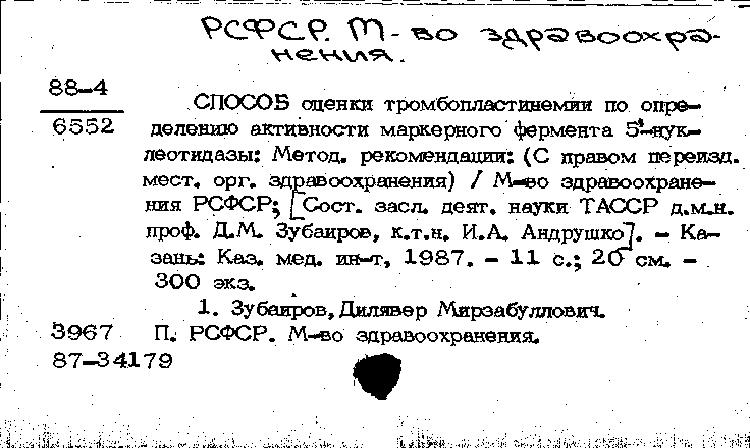 РСФСР. М-во здравоохра-
нения.
88-4
6552
СПОСОБ оценки тромбопластинемии по опре-
делению активности маркерного фермента 5'-нук-
леотидазы: Метод. рекомендации: (С правом переизд.
мест. орг. здравоохранения) / М-во здравоохране-
ния РСФСР; [Сост. засл. деят. науки ТАССР д.м.н.
проф. Д.М. Зубаиров, к.т.н. И.А. Андрушко]. - Ка-
зань: Каз. мед. ин-т, 1987. - 11 с.; 20 см. -
300 экз.
1. Зубаиров, Дилявер Мирзабуллович.
3967 П. РСФСР. М-во здравоохранения.
87-34179